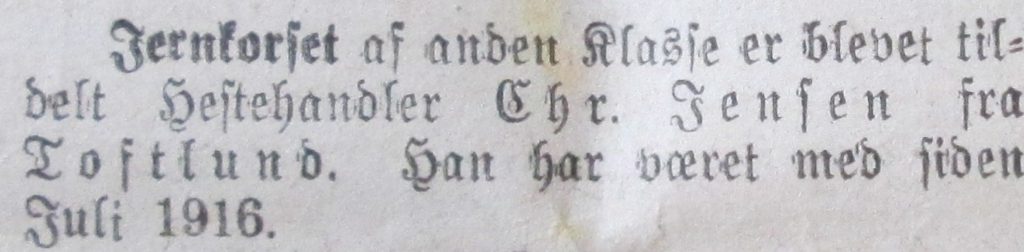 Jernkorset af anden Klasse er blevet til-
delt Hestehandler Chr. Jensen fra
Toftlund. Han har været med siden
Juli 1916.